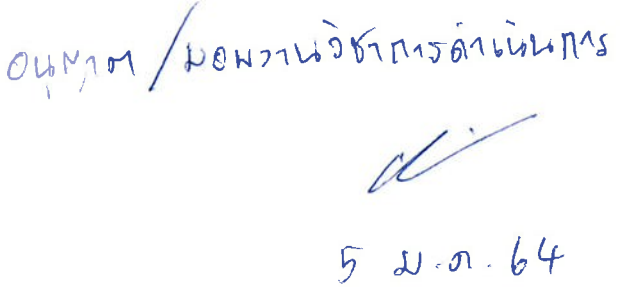 อนุญาต / มอบงานวิชาการดำเนินการ
5 ม.ค. 64